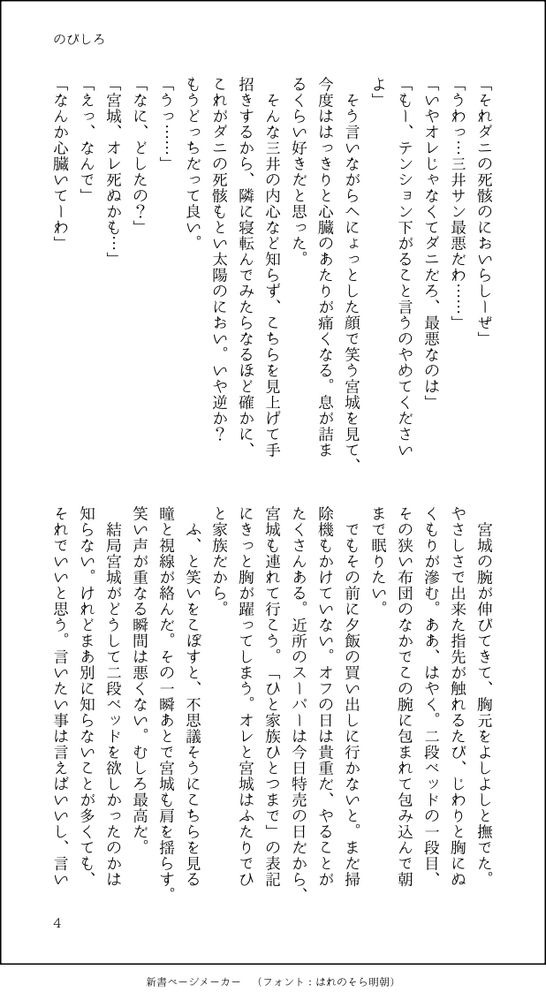 のびしろ
「それダニの死骸のにおいらしーぜ」
「うわっ…三井サン最悪だわ……」
「いやオレじゃなくてダニだろ、最悪なのは」
「もー、テンション下がること言うのやめてください
よ」
　そう言いながらへにょっとした顔で笑う宮城を見て、
今度ははっきりと心臓のあたりが痛くなる。息が詰ま
るくらい好きだと思った。
　そんな三井の内心など知らず、こちらを見上げて手
招きするから、隣に寝転んでみたらなるほど確かに、
これがダニの死骸もとい太陽のにおい。いや逆か？
もうどっちだって良い。
「うっ……」
「なに、どしたの？」
「宮城、オレ死ぬかも…」
「えっ、なんで」
「なんか心臓いてーわ」
　宮城の腕が伸びてきて、胸元をよしよしと撫でた。
やさしさで出来た指先が触れるたび、じわりと胸にぬ
くもりが滲む。ああ、はやく。二段ベッドの一段目、
その狭い布団のなかでこの腕に包まれて包み込んで朝
まで眠りたい。
　でもその前に夕飯の買い出しに行かないと。まだ掃
除機もかけていない。オフの日は貴重だ、やることが
たくさんある。近所のスーパーは今日特売の日だから、
宮城も連れて行こう。「ひと家族ひとつまで」の表記
にきっと胸が躍ってしまう。オレと宮城はふたりでひ
と家族だから。
　ふ、と笑いをこぼすと、不思議そうにこちらを見る
瞳と視線が絡んだ。その一瞬あとで宮城も肩を揺らす。
笑い声が重なる瞬間は悪くない。むしろ最高だ。
　結局宮城がどうして二段ベッドを欲しかったのかは
知らない。けれどまあ別に知らないことが多くても、
それでいいと思う。言いたい事は言えばいいし、言い
4
新書ページメーカー　（フォント：はれのそら明朝）